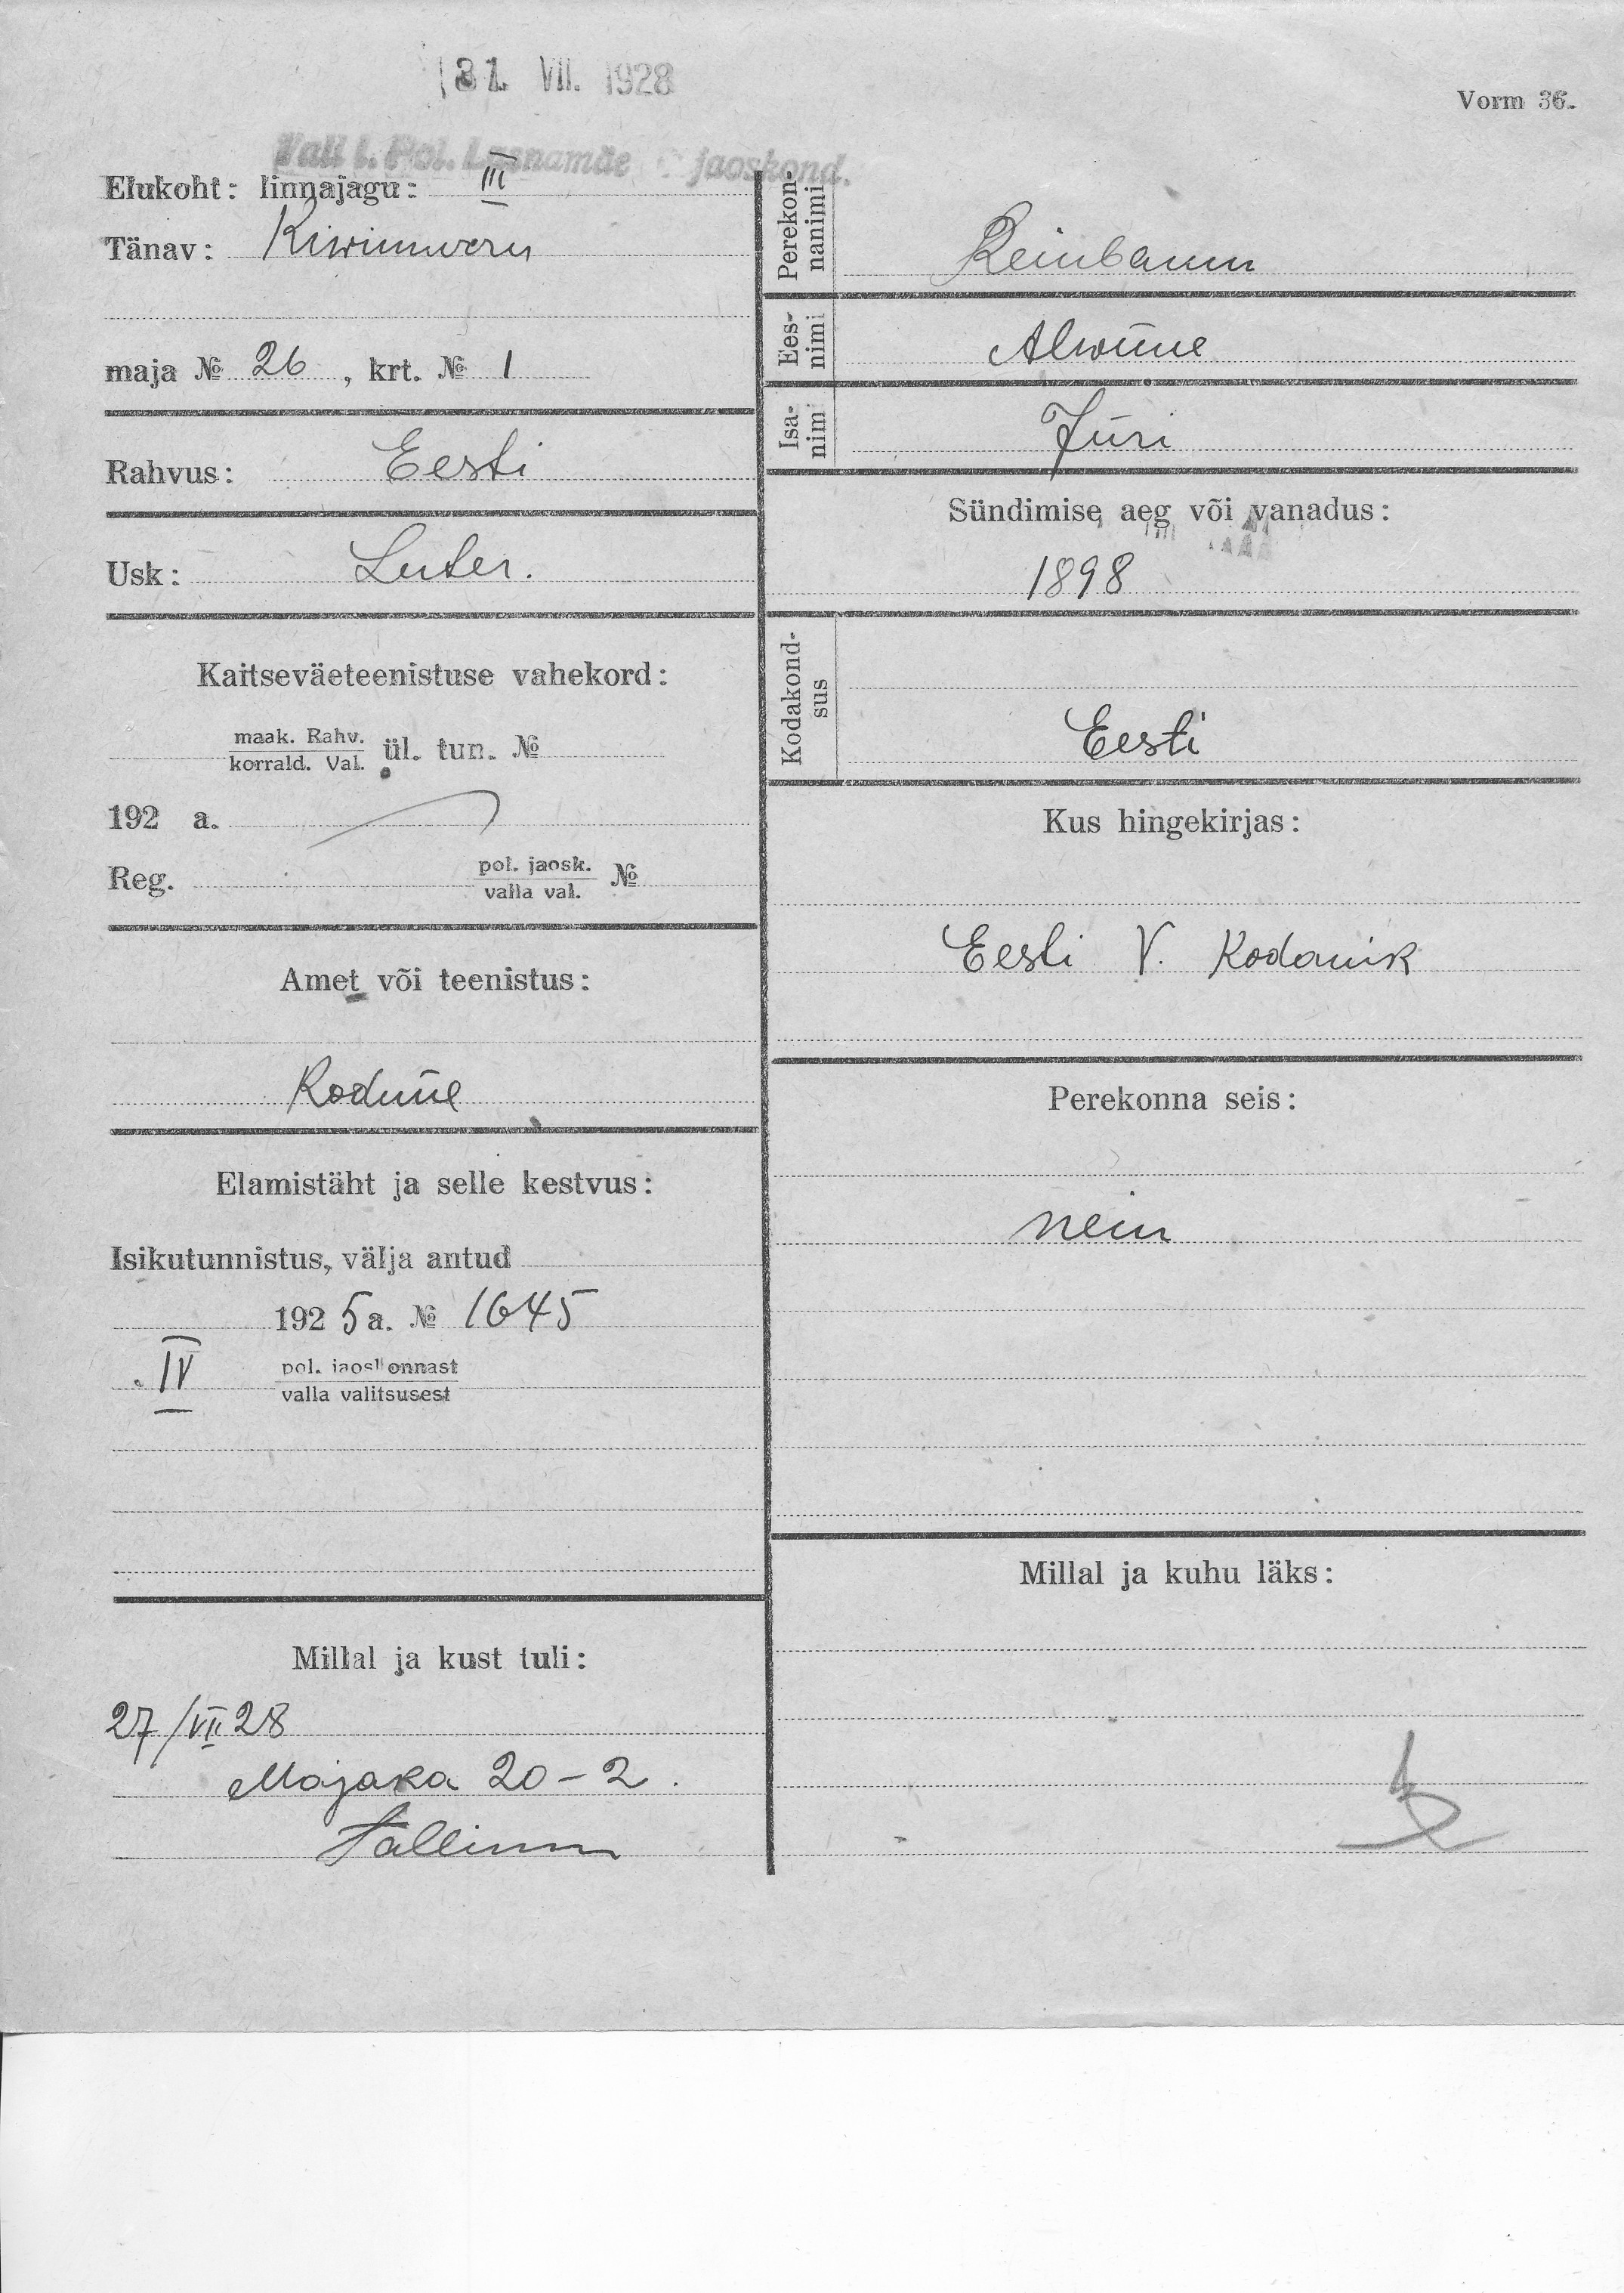 31. VII. 1928
Vorm 36.
Tall l. Pol. Lasnamäe jaoskond.
Elukoht: linnajagu: III
Tänav: Kiwimurru
maja № 26, krt. № 1
Rahvus: Eesti
Usk: Luter.
Kaitseväeteenistuse vahekord:
maak. Rahv.
korrald. Val. ül. tun. №
192 a.
Reg. pol. jaosk.
valla val. №
Amet või teenistus:
Kodune
Elamistäht ja selle kestvus:
Isikutunnistus, välja antud
1925 a. № 1645
IV pol. jaoskonnast
valla valitsusest
Millal ja kust tuli:
27/VII 28
Majaka 20-2.
Tallinn
Perekon-
nanimi Reinbaum
Ees-
nimi Alwiine
Isa-
nimi Jüri
Sündimise aeg või vanadus:
1898
Kodakond-
sus
Eesti
Kus hingekirjas:
Eesti V. Kodanik
Perekonna seis:
nein
Millal ja kuhu läks: